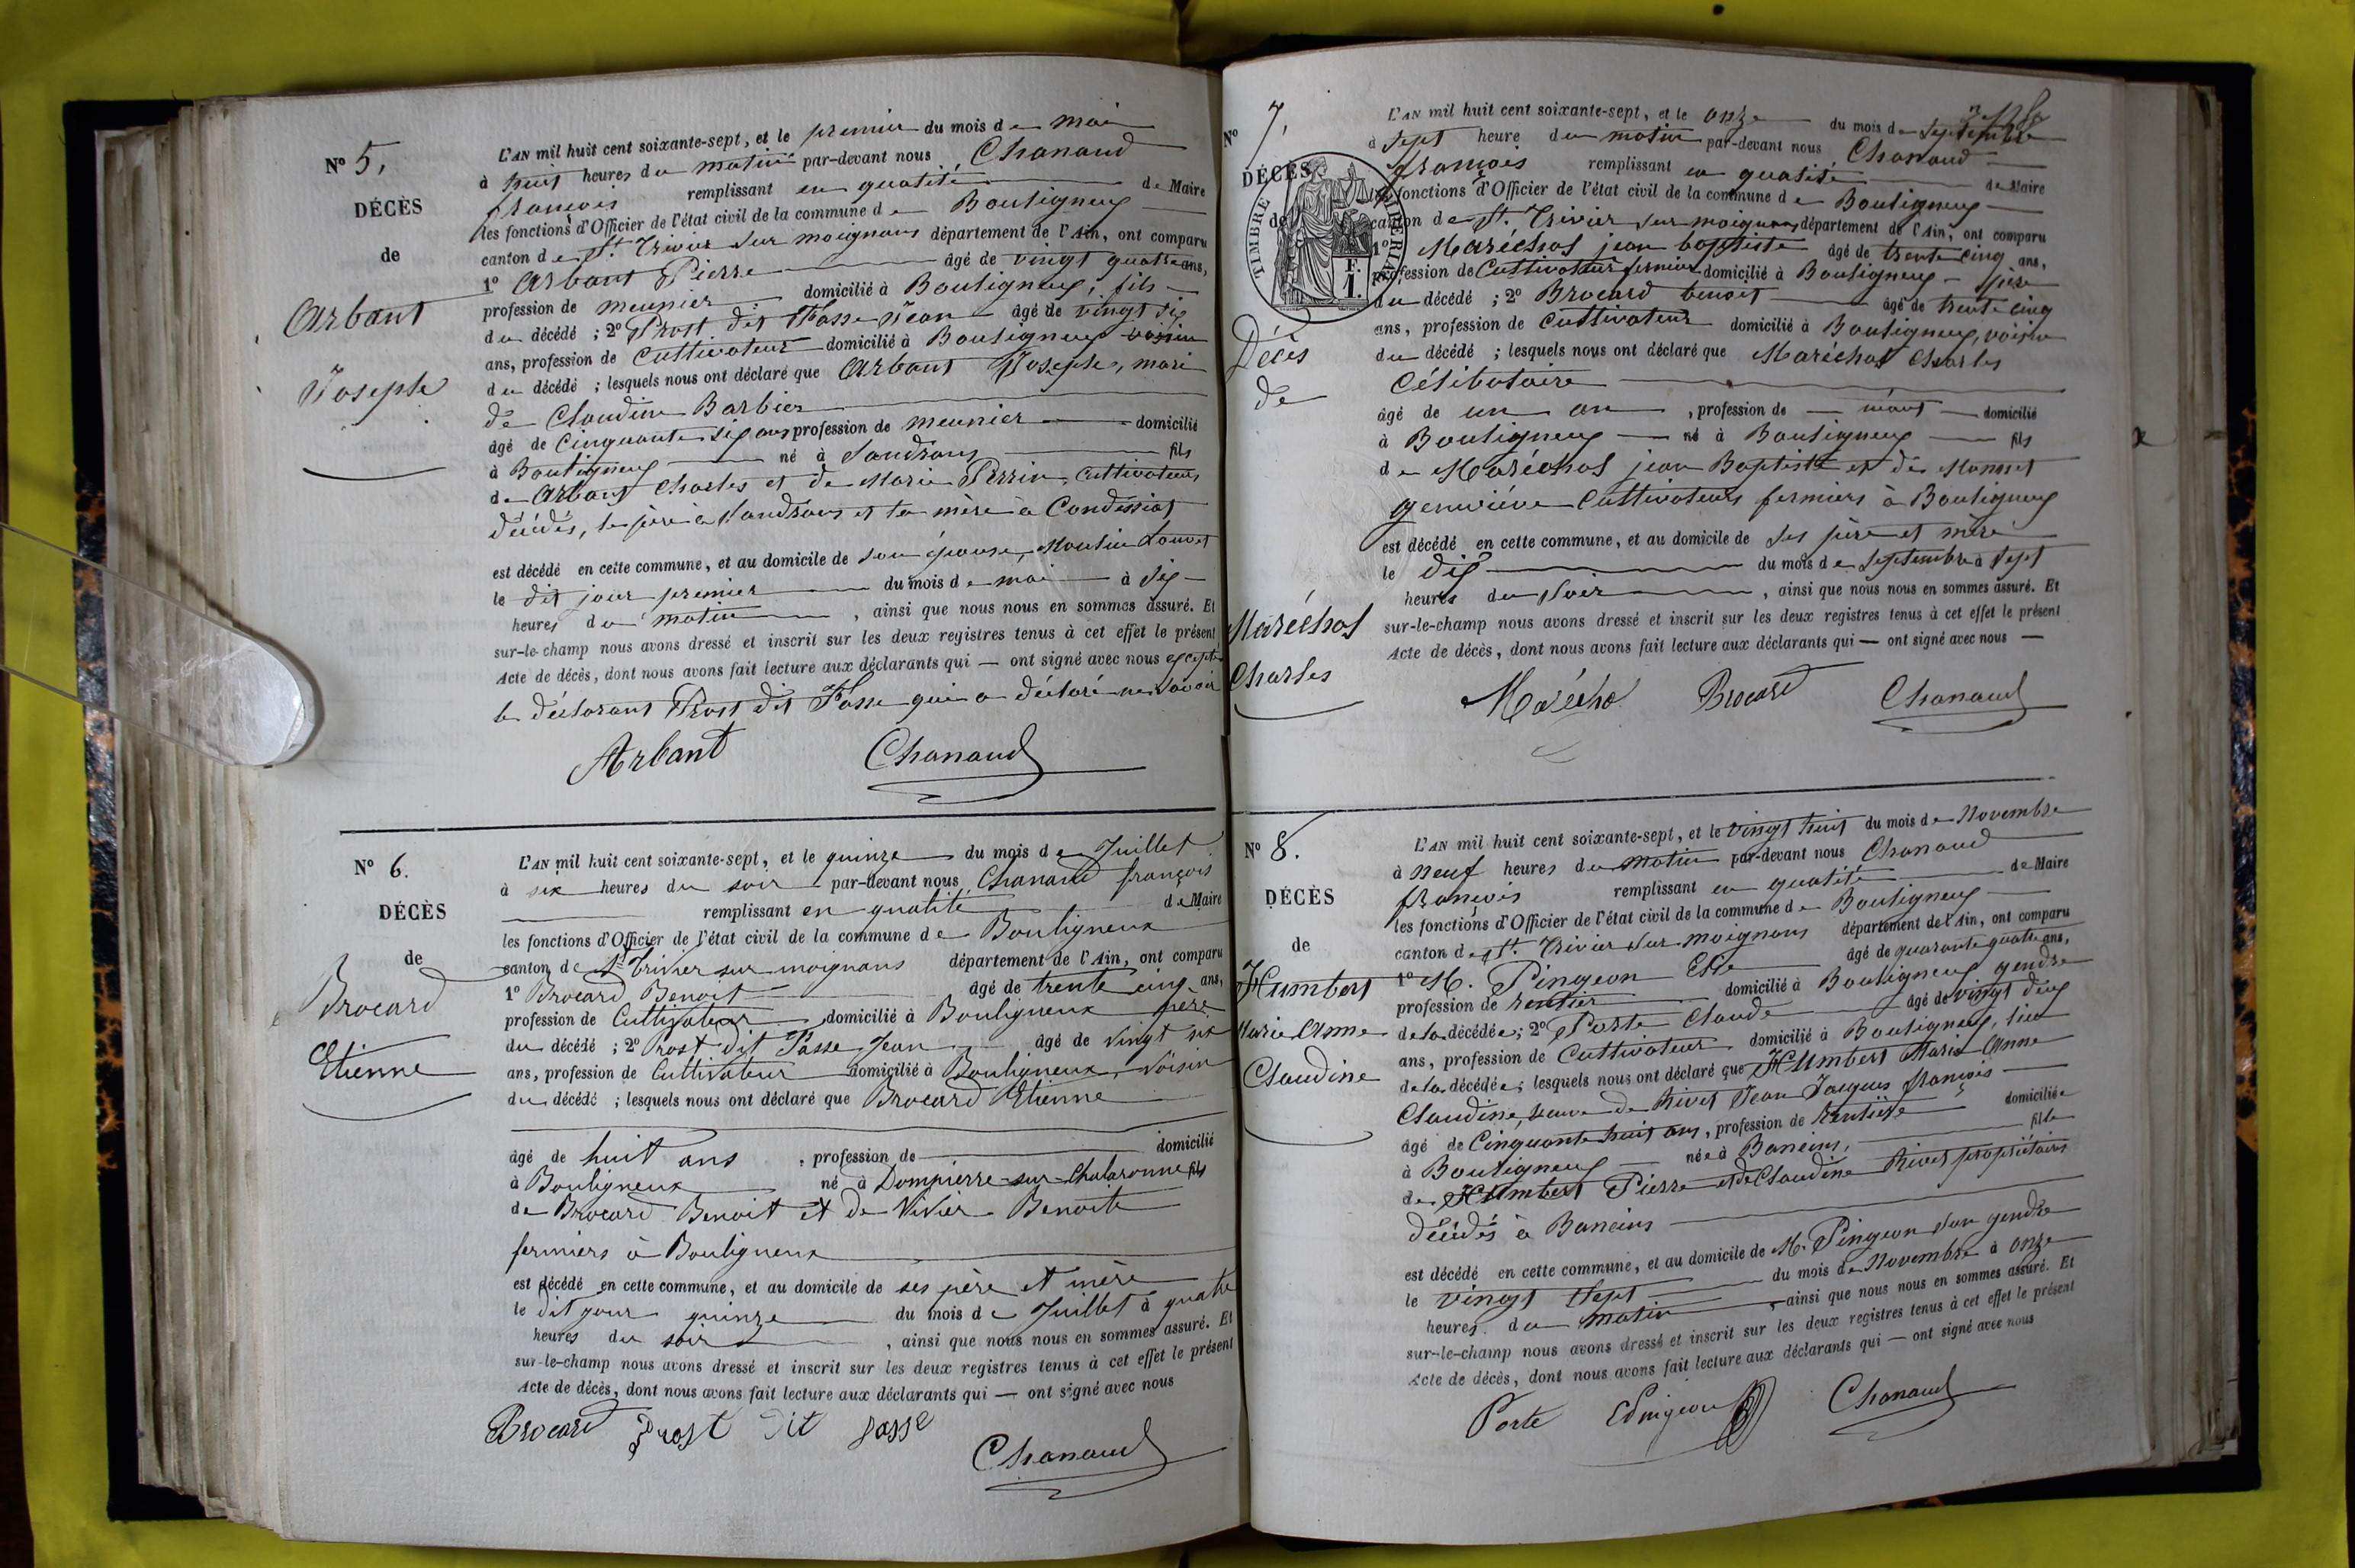 N° 5.
DÉCÈS
de
Arbant
Joseph
L'AN mil huit cent soixante-sept, et le premier du mois de mai
à huit heures du matin par-devant nous Chanaud
françois remplissant en qualité de Maire
les fonctions d'Officier de l'état civil de la commune de Bouligneux
canton de St. Trivier sur moignans département de l'Ain, ont comparu
1° Arbant Pierre âgé de vingt quatre ans,
profession de meunier domicilié à Bouligneux, fils
du décédé ; 2° Prost dit Passe Jean âgé de vingt six
ans, profession de cultivateur domicilié à Bouligneux voisin
du décédé ; lesquels nous ont déclaré que Arbant Joseph, mari
de Claudine Barbier
âgé de Cinquante six ans profession de meunier domicilié
à Bouligneux né à Sandrans fils
de Arbant Charles et de Marie Perrin, cultivateurs
décédés, le père à Sandrans et la mère à Condessiat
est décédé en cette commune, et au domicile de son épouse, Moulin Louvet
le dit jour premier du mois de mai à six
heures du matin , ainsi que nous nous en sommes assuré. Et
sur-le-champ nous avons dressé et inscrit sur les deux registres tenus à cet effet le présent
Acte de décès, dont nous avons fait lecture aux déclarants qui — ont signé avec nous excepté
le déclarant Prost dit Passe qui a déclaré ne savoir
Arbant Chanaud
N° 6.
DÉCÈS
de
Brocard
Etienne
L'AN mil huit cent soixante-sept, et le quinze du mois de Juillet
à six heures du soir par-devant nous Chanaud françois
remplissant en qualité de Maire
les fonctions d'Officier de l'état civil de la commune de Bouligneux
canton de St Trivier sur moignans département de l'Ain, ont comparu
1° Brocard Benoit âgé de trente cinq ans,
profession de Cultivateur domicilié à Bouligneux père
du décédé ; 2° Prost dit Passe Jean âgé de vingt six
ans, profession de Cultivateur domicilié à Bouligneux, voisin
du décédé ; lesquels nous ont déclaré que Brocard Etienne
âgé de huit ans , profession de domicilié
à Bouligneux né à Dompierre-sur-Chalaronne fils
de Brocard Benoit et de Vivier Benoite
fermiers à Bouligneux
est décédé en cette commune, et au domicile de ses père et mère
le dit jour quinze du mois de Juillet à quatre
heures du soir , ainsi que nous nous en sommes assuré. Et
sur-le-champ nous avons dressé et inscrit sur les deux registres tenus à cet effet le présent
Acte de décès, dont nous avons fait lecture aux déclarants qui — ont signé avec nous
Brocard Prost dit passe
Chanaud
N° 7,
DÉCÈS
de
TIMBRE IMPÉRIAL
F.
1.
Décès
de
Maréchal
Charles
L'AN mil huit cent soixante-sept, et le onze du mois de Septembre
à sept heure du matin par-devant nous Chanaud
françois remplissant en qualité de Maire
les fonctions d'Officier de l'état civil de la commune de Bouligneux
canton de St. Trivier sur moignans département de l'Ain, ont comparu
1° Maréchal jean baptiste âgé de trente cinq ans,
profession de Cultivateur fermier domicilié à Bouligneux père
du décédé ; 2° Brocard benoit âgé de trente cinq
ans, profession de cultivateur domicilié à Bouligneux, voisin
du décédé ; lesquels nous ont déclaré que Maréchal Charles
Célibataire
âgé de un an , profession de néant domicilié
à Bouligneux né à Bouligneux fils
de Maréchal jean Baptiste et de Monnet
genviève Cultivateurs fermiers à Bouligneux
est décédé en cette commune, et au domicile de ses père et mère
le dix du mois de Septembre à sept
heures du soir , ainsi que nous nous en sommes assuré. Et
sur-le-champ nous avons dressé et inscrit sur les deux registres tenus à cet effet le présent
Acte de décès, dont nous avons fait lecture aux déclarants qui — ont signé avec nous —
Marécha Brocard Chanaud
N° 8.
DÉCÈS
de
Humbert
Marie Anne
Claudine
L'AN mil huit cent soixante-sept, et le vingt huit du mois de Novembre
à neuf heures du matin par-devant nous Chanaud
françois remplissant en qualité de Maire
les fonctions d'Officier de l'état civil de la commune de Bouligneux
canton de St. Trivier sur moignans département de l'Ain, ont comparu
1° M. Pingeon âgé de quarante quatre ans,
profession de rentier domicilié à Bouligneux gendre
de la décédée ; 2° Porte Claude âgé de vingt deux
ans, profession de Cultivateur domicilié à Bouligneux,
de la décédée ; lesquels nous ont déclaré que Humbert Marie Anne
Claudine, veuve de Rivet Jean Jacques françois
âgé de Cinquante huit ans, profession de Rentière domiciliée
à Bouligneux née à Baneins, fille
de Humbert Pierre et de Claudine Rivet propriétaires
décédés à Baneins
est décédé en cette commune, et au domicile de M. Pingeon son gendre
le vingt sept du mois de Novembre à onze
heures du matin , ainsi que nous nous en sommes assuré. Et
sur-le-champ nous avons dressé et inscrit sur les deux registres tenus à cet effet le présent
Acte de décès, dont nous avons fait lecture aux déclarants qui — ont signé avec nous
Porte EPingeon Chanaud